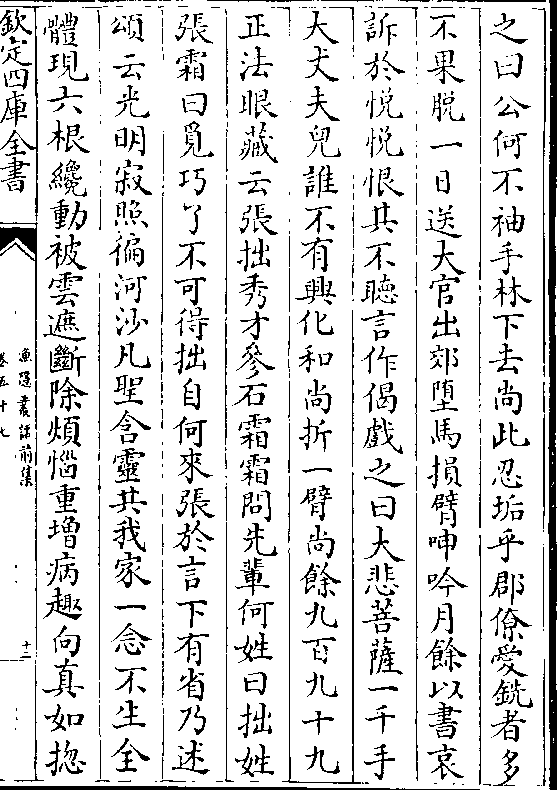 之曰公何不袖手林下去尚此忍垢乎郡僚愛銑者多
不果脱一日送大官出郊墮馬損臂呻吟月餘以書哀
訴於悦悦恨其不聽言作偈戲之曰大悲菩薩一千手
大丈夫兒誰不有興化和尚折一臂尚餘九百九十九
正法眼藏云張拙秀才參石霜霜問先輩何姓曰拙姓
張霜曰覓巧了不可得拙自何來張於言下有省乃述
頌云光明寂照徧河沙凡聖含靈共我家一念不生全
體現六根纔動被雲遮斷除煩惱重增病趣向真如揔
欽定四庫全書
漁隠叢話前集
卷五十七
十二